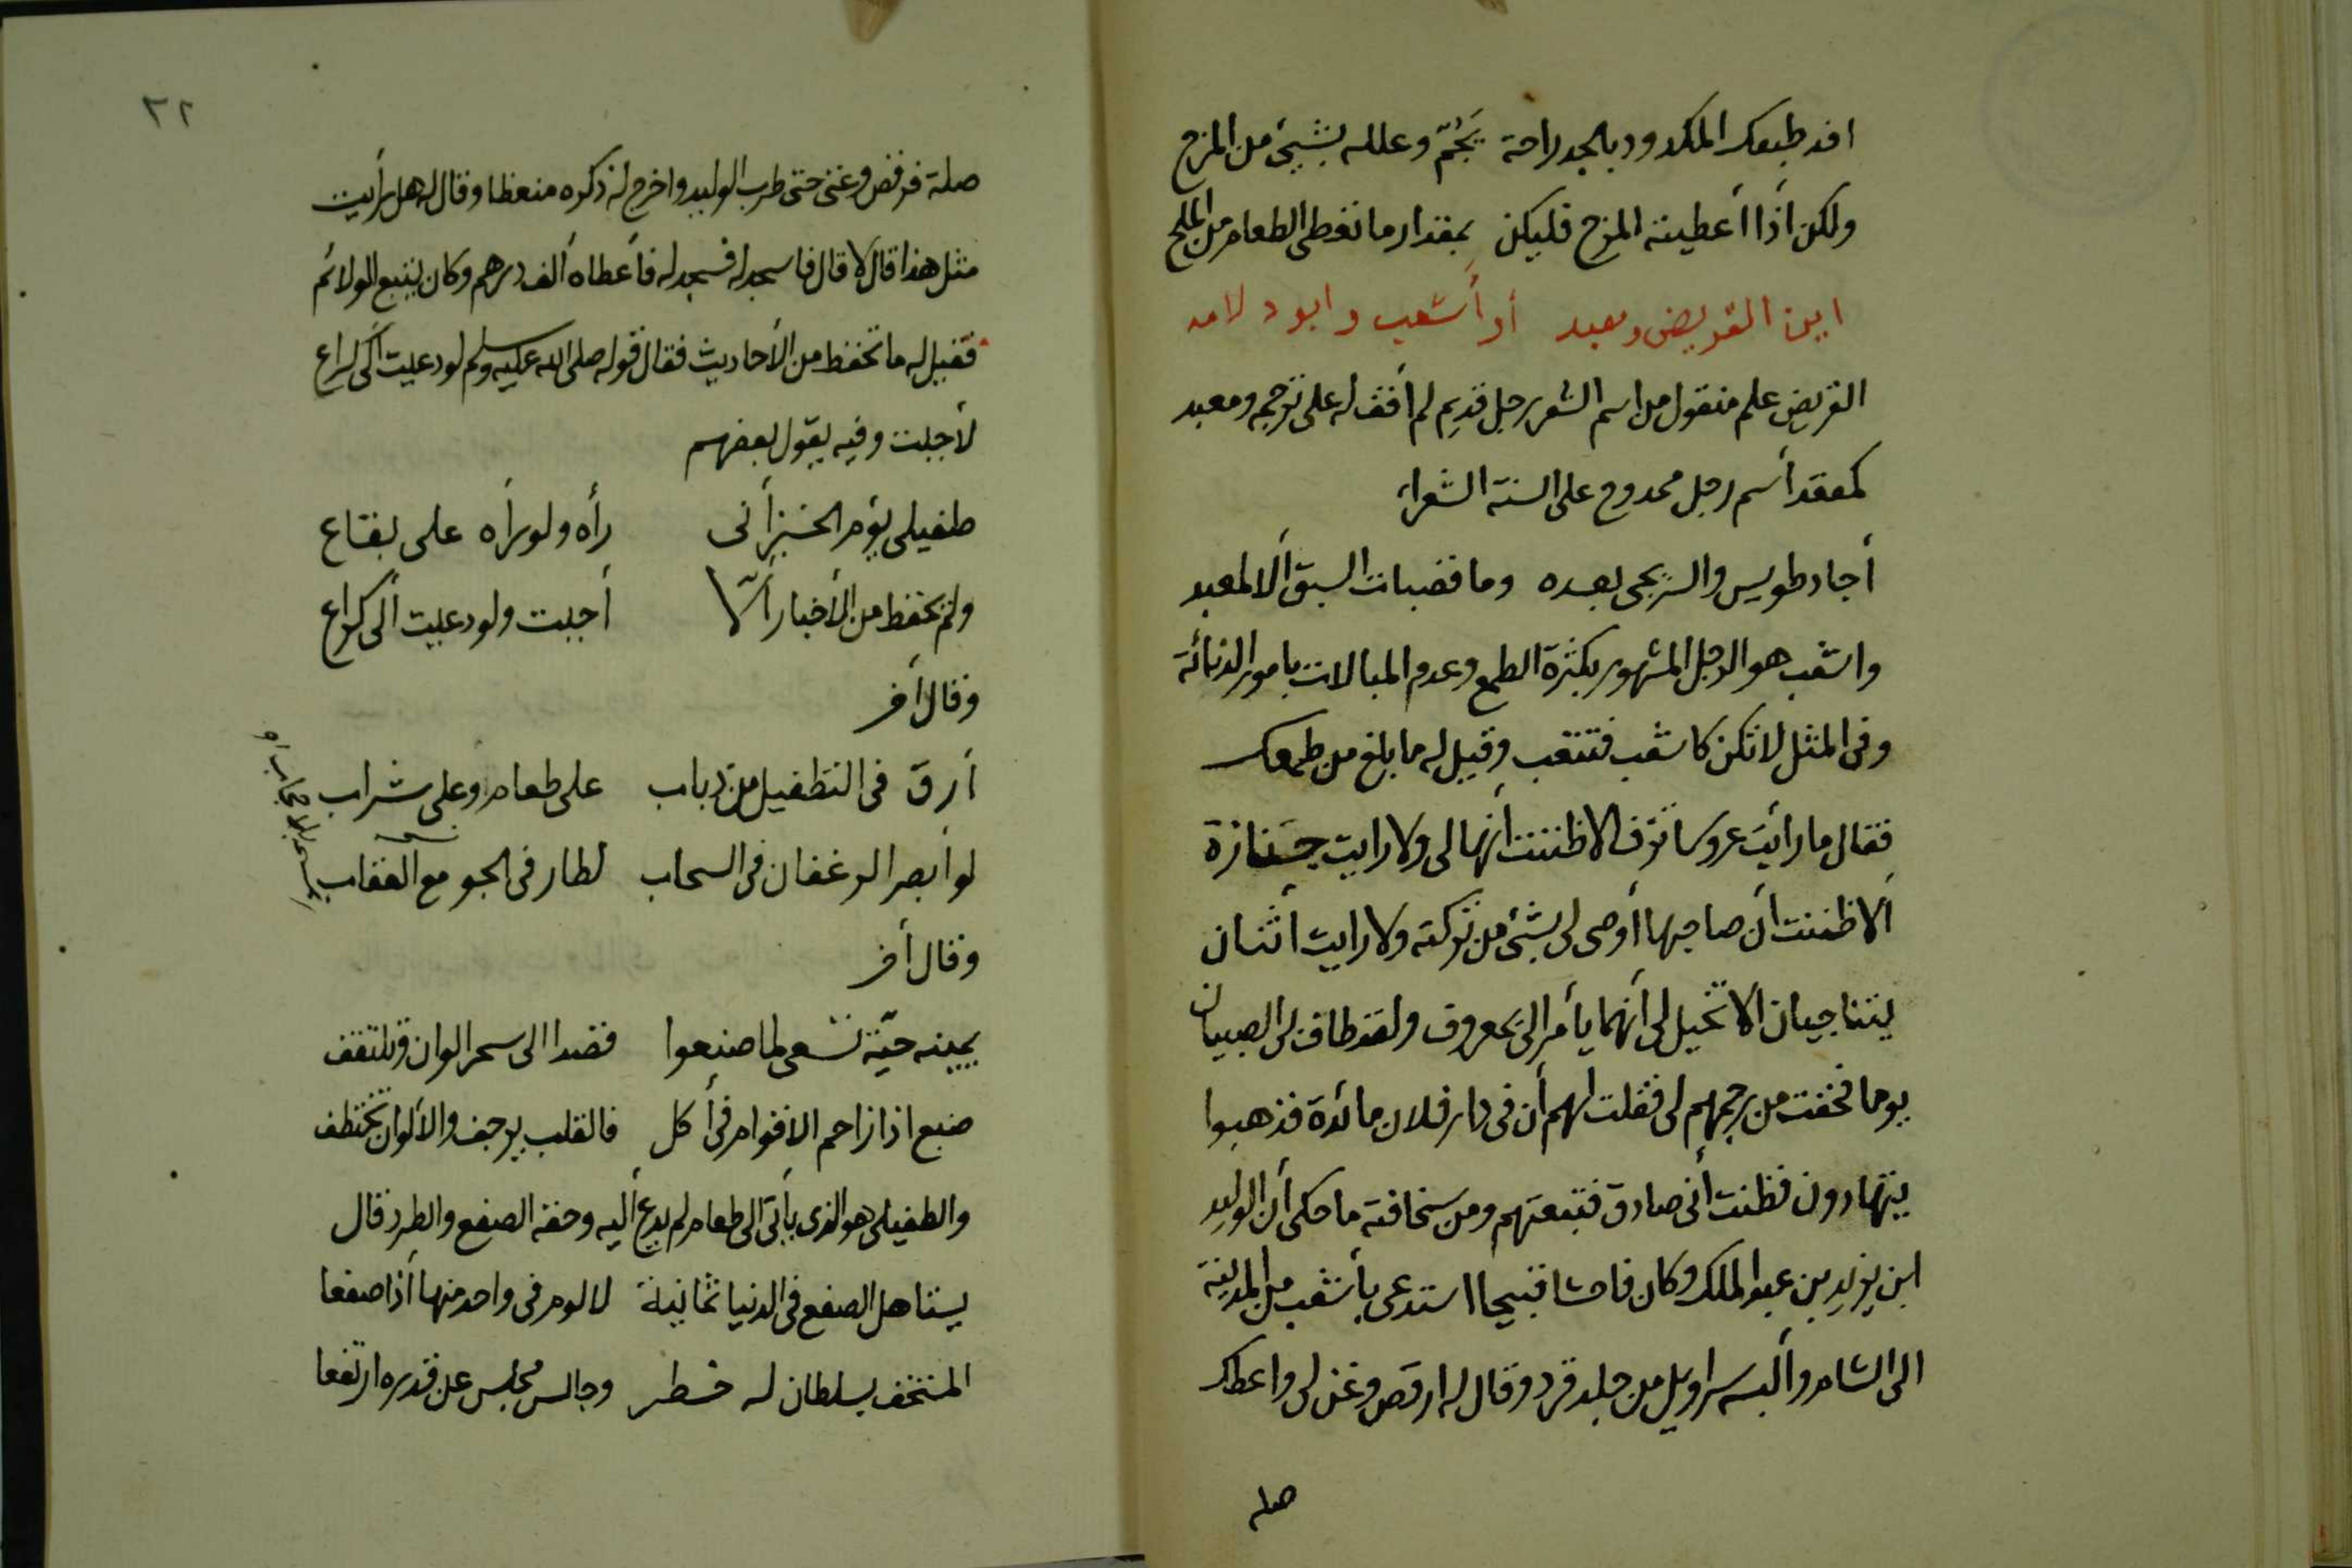 افد طبعك المكدود بالجد راحة يُجَمّ وعلله بشيئ من المزح
ولكن اذا أعطيته المزح فليكن بمقدار ما تغطى الطعام من الملح
اين القريض ومعبد أو أشعب وابو دلامه
القريض علم منقول من اسم الشعر رجل قديم لم أقف له على ترجمه ومعبد
كمعقد أسم رجل ممدوح على السنة الشعراء
أجاد طويس والسريجى بعده وما قضبات السبق ألا لمعبد
واشعب هو الرجل المشهور بكثرة الطمع وعدم المبالات بامور الدنائة
وفى المثل لا تكن كاشعب فتتعب وقيل له ما بلغ من طمعك
فقال ما رأيت عروسا تزف الا ظننت أنها لى ولا رايت جنازة
ألا ظننت أن صاحبها أوصى لى بشئ من تركته ولا رايت أثنان
يتناجيان الا تخيل لى أنهما يأمر الى بمعروف ولقد طاف لى الصبيان
يوما فخفت من رجمهم لى فقلت لهم أن فى دار فلان مائدة فذهبوا
يتهادون فظنت أنى صادق فتبعتهم ومن سخافته ما حكى أن الوليد
ابن يزيد بن عبد الملك وكان فاحشا قبيحا استدعى بأشعب من المدينة
الى الشام وألبسه سراويل من جلد قرد وقال له ارقص وغن لى واعطك
صله
٣٢
صلة فرقص وغنى حتى طرب الوليد واخرج له ذكره منعظا وقال له هل رأيت
مثل هذا قال لا قال فاسجد له فسجد له فأعطاه ألف درهم وكان يتبع الولائم
فقيل له ما تحفظ من الأحاديث فقال قوله صلى الله عليه وسلم لو دعيت ألى كراع
لأجبت وفيه يقول بعضهم
طفيلى يؤم الخبز أنى رأه ولو رأه على بقاع
ولم يحفظ من الأخبار ألّا أجبت ولو دعيت ألى كراع
وقال أخر
أرق فى التطفيل من ذباب على طعام وعلى شراب
لو أبصر الرغفان فى السحاب لطار فى الجو مع العقاب
وقال أخر
يمينه حيّة تسعى لما صنعوا قصدا الى سحر الوان وتلتقف
ضبع اذا زاحم الاقوام فى أكل فالقلب يرجف والألوان تختطف
والطفيلى هو الذى يأتى الى طعام لم يدع أليه وحقه الصفع والطرد قال
يستاهل الصفع فى الدنيا ثمانية لا لوم فى واحد منها أذا صفعا
المستخف بسلطان له خطر وجالس مجلس عن قدره ارتفعا